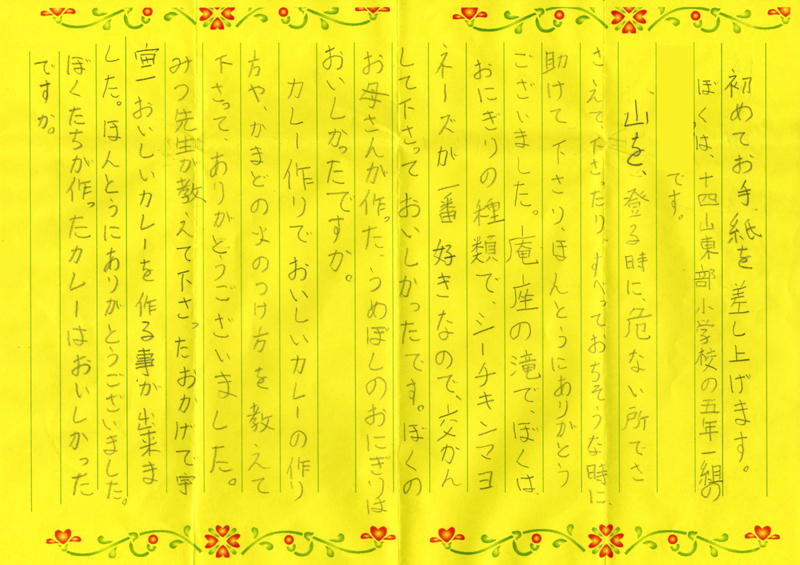 初めてお手紙を差し上げます。
ぼくは、十四山東部小学校の五年一組の
です。
山を、登る時に、危ない所でさ
さえて下さったり、すべっておちそうな時に
助けて下さり、ほんとうにありがとう
ございました。庵座の滝で、ぼくは
おにぎりの種類で、シーチキンマヨ
ネーズが一番好きなので、交かん
して下さっておいしかったです。ぼくの
お母さんが作った、うめぼしのおにぎりは
おいしかったですか。
カレー作りでおいしいカレーの作り
方や、かまどの火のつけ方を教えて
下さって、ありがとうございました。
みつ先生が教えて下さったおかげで宇
宙一おいしいカレーを作る事が出来ま
した。ほんとうにありがとうございました。
ぼくたちが作ったカレーはおいしかった
ですか。